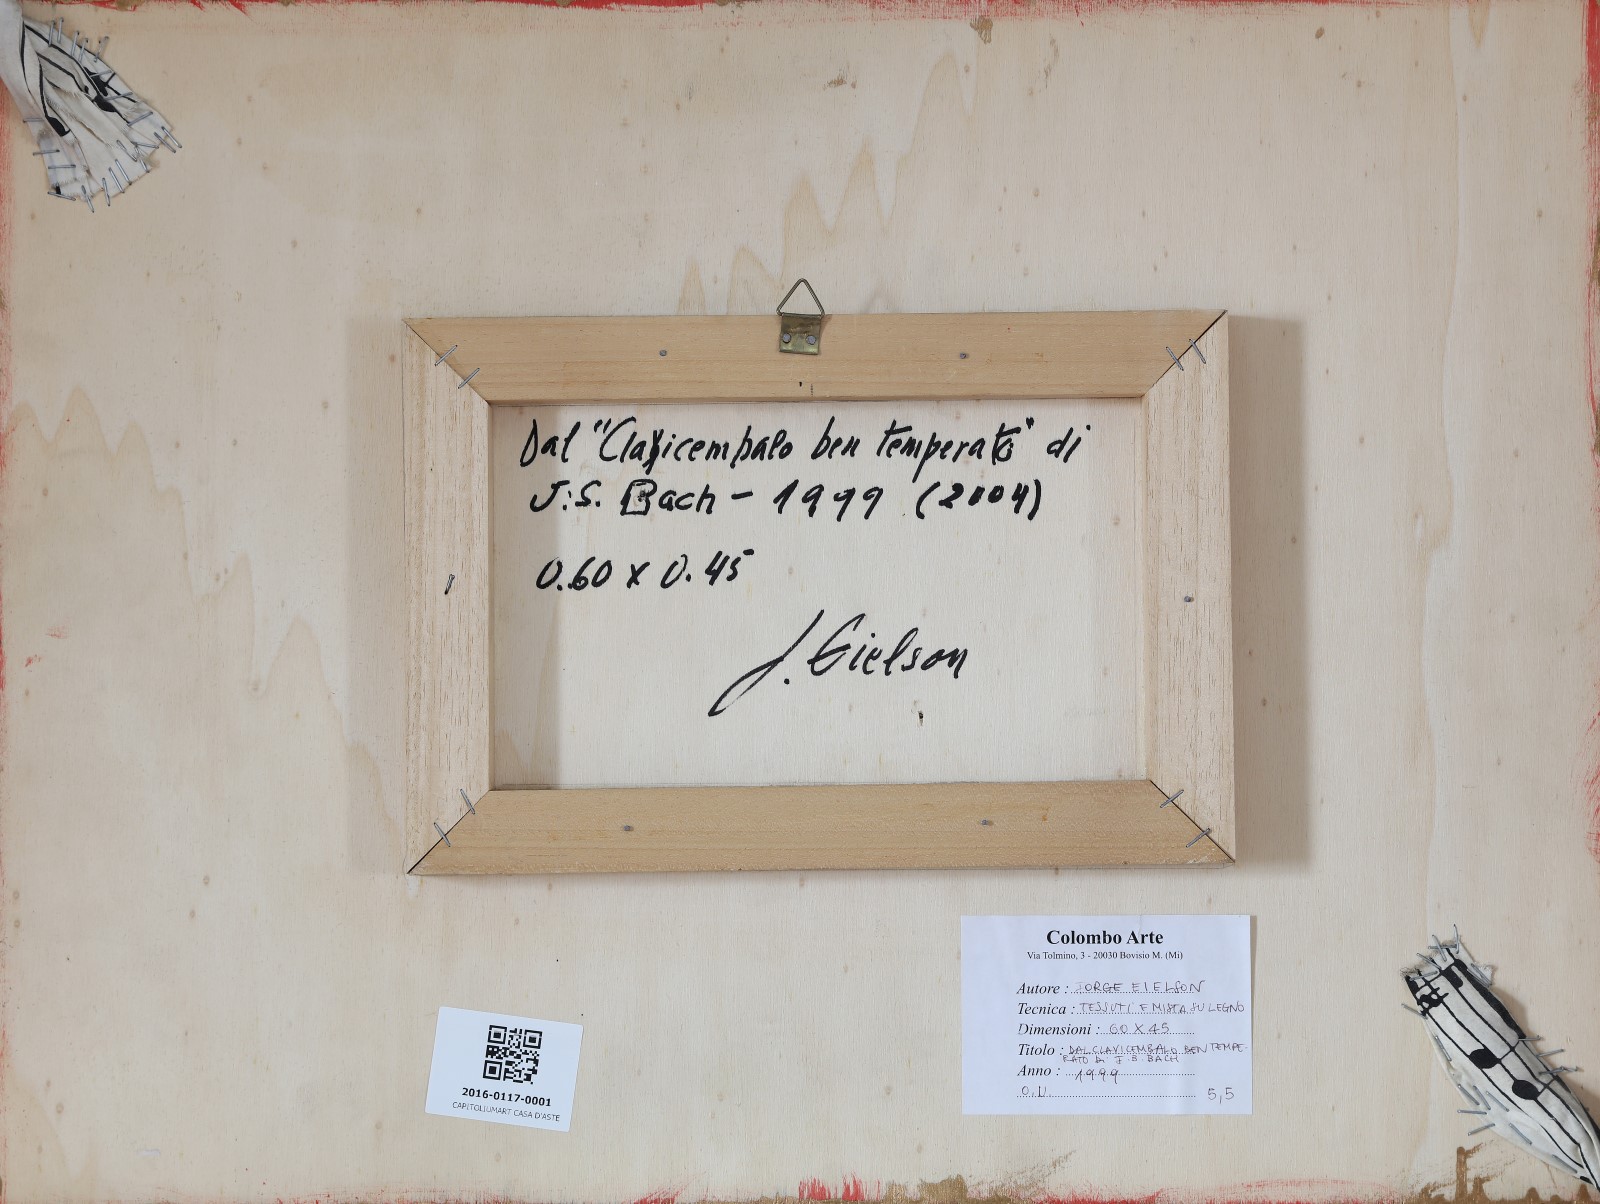 Dal "Clavicembalo ben temperato" di
J.S. Bach - 1999 (2004)
0.60 x 0.45
J. Eielson
Colombo Arte
Via Tolmino, 3 - 20030 Bovisio M. (Mi)
Autore : JORGE EIELSON
Tecnica : TESSUTI E MISTA SU LEGNO
Dimensioni : 60 X 45
Titolo : DAL CLAVICEMBALO BEN TEMPE-
RATO DI J. S. BACH
Anno : 1999
5,5
2016-0117-0001
CAPITOLIUMART CASA D'ASTE